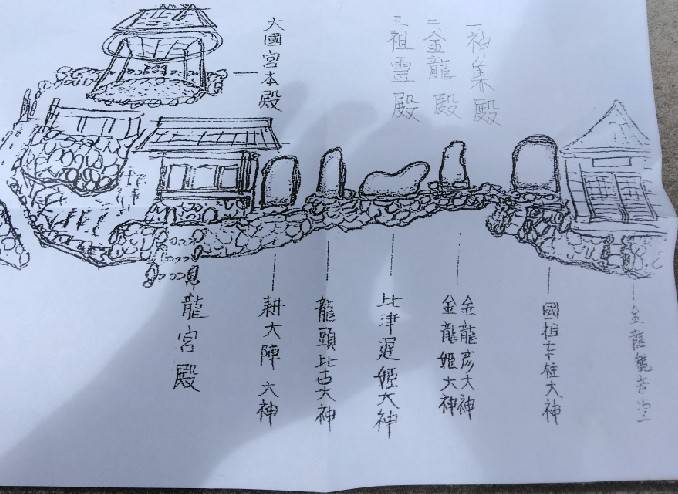 集殿
二金龍殿
三祖霊殿
大國宮本殿
金龍
國祖大神
金龍彦大神
金龍姫大神
比津遲姫大神
龍頭比古大神
耕大陣大神
龍宮殿